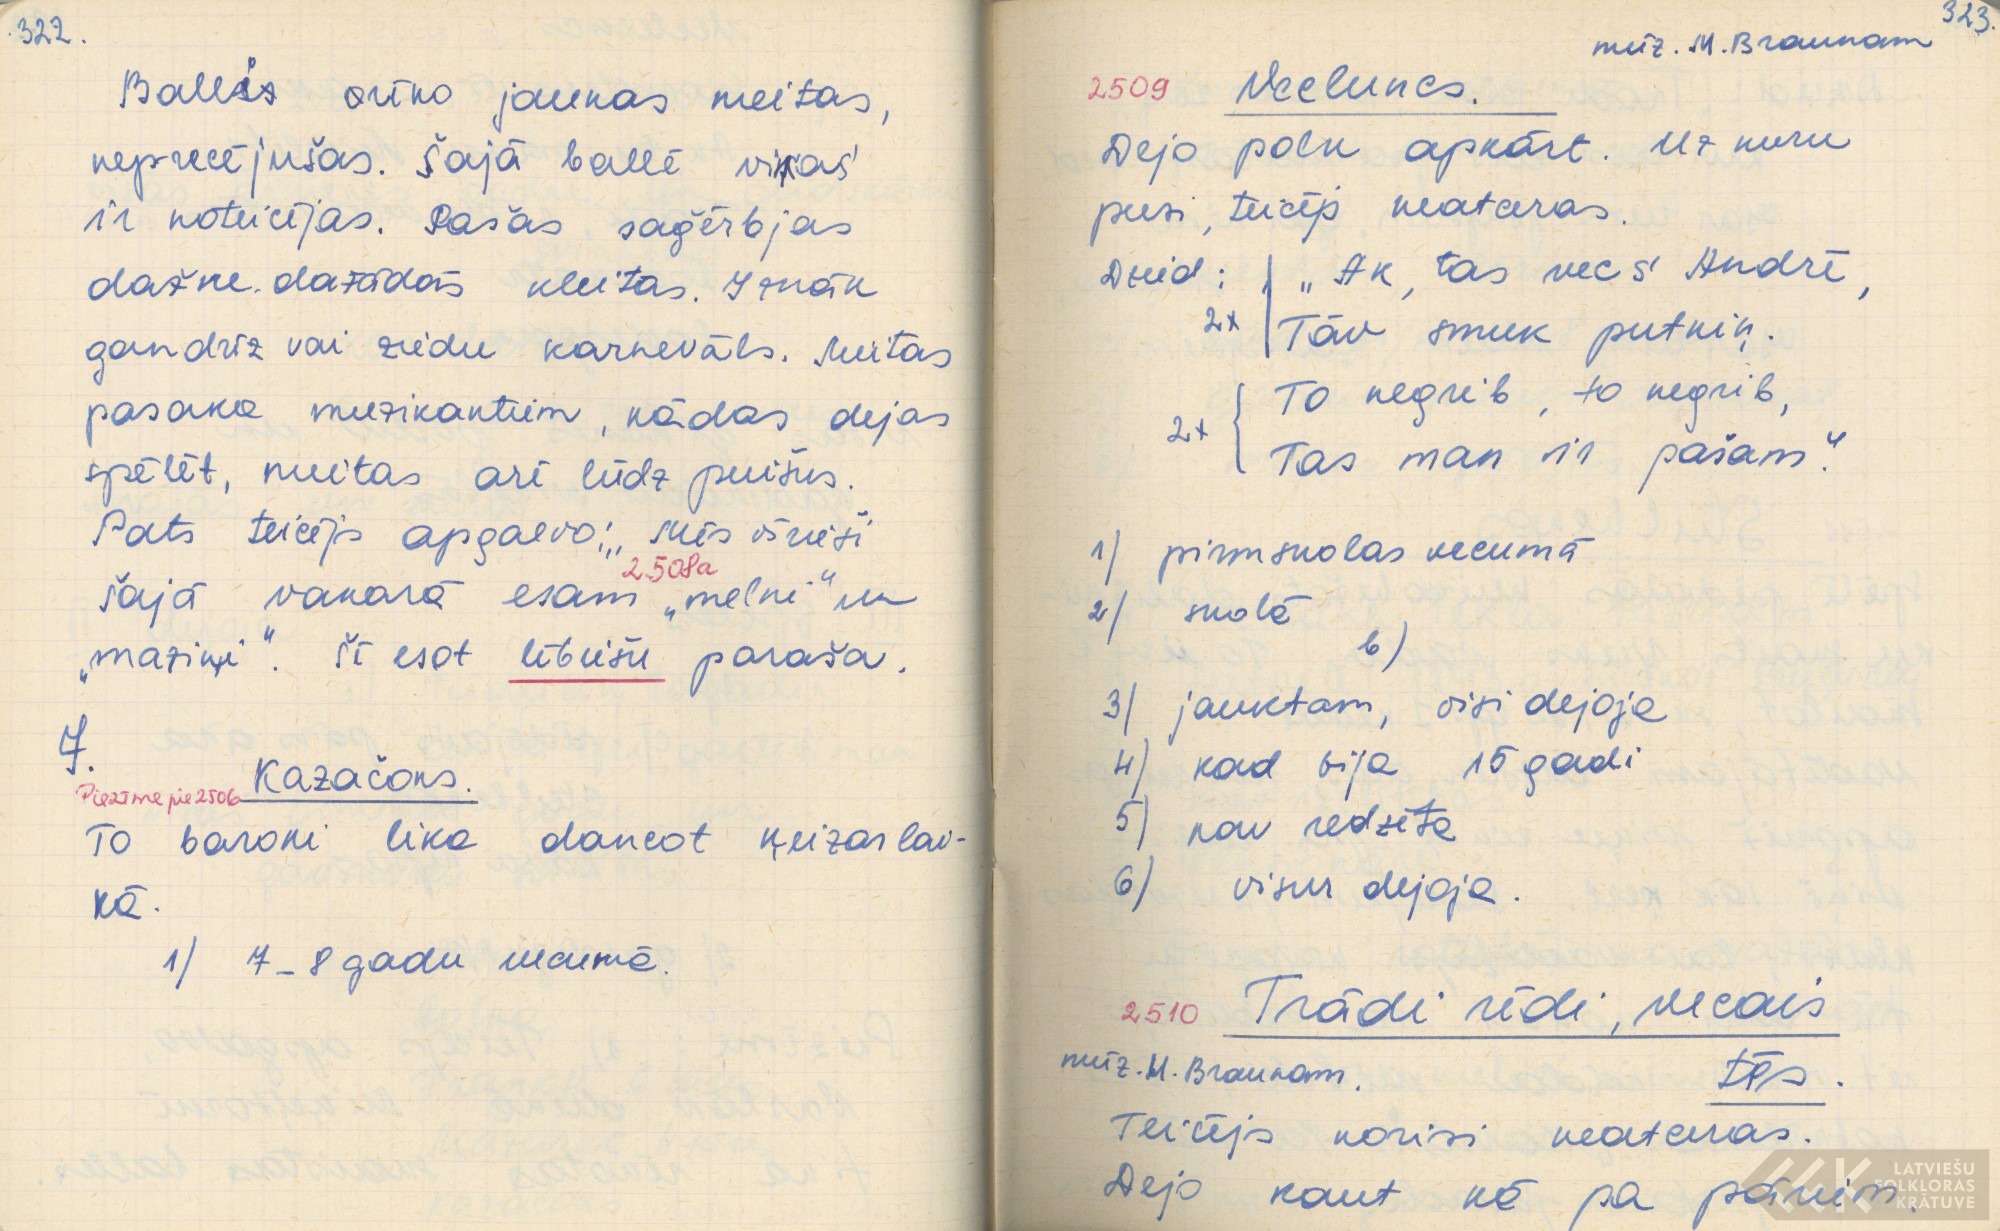 322.
Balles rīko jaunas meitas,
neprecējušas. Šajā ballē viņas
ir noteicējas. Pašas saģērbjas
dažne dažādās kleitas. Iznāk
gandrīz vai ziedu karnevāls. Meitas
pasaka muzikantiem, kādas dejas
spēlēt, meitas arī lūdz puišus.
Pats teicējs apgalvo: „Mēs vīrieši
2508a
šajā vakarā esam „melni" un
„maziņi". Šī esot lībiešu paraša.
7.
Kazačoks.
Piezīme pie 2506
To baroni lika dancot ķeizarlai-
kā.
1) 7-8 gadu vecumā.
323.
mūz. M. Braunam
2509 Vecluncs.
Dejo polk apkārt. Uz kuru
pusi, teicējs neatceras.
Dzied: „Ak, tas vecs Andrē,
2x Tāv smuk putniņ.
To negrib, to negrib,
2x
Tas man ir pašam."
1) pirmskolas vecumā
2) skolā
b)
3) jauktam, visi dejoja
4) kad bija 15 gadi
5) nav redzēta
6) visur dejoja.
2510 Trādi rīdi, vecais
mūz. M. Braunam. tēs.
Teicējs norisi neatceras.
Dejo kaut kā pa pāriem.
LATVIEŠU
FOLKLORAS
KRĀTUVE